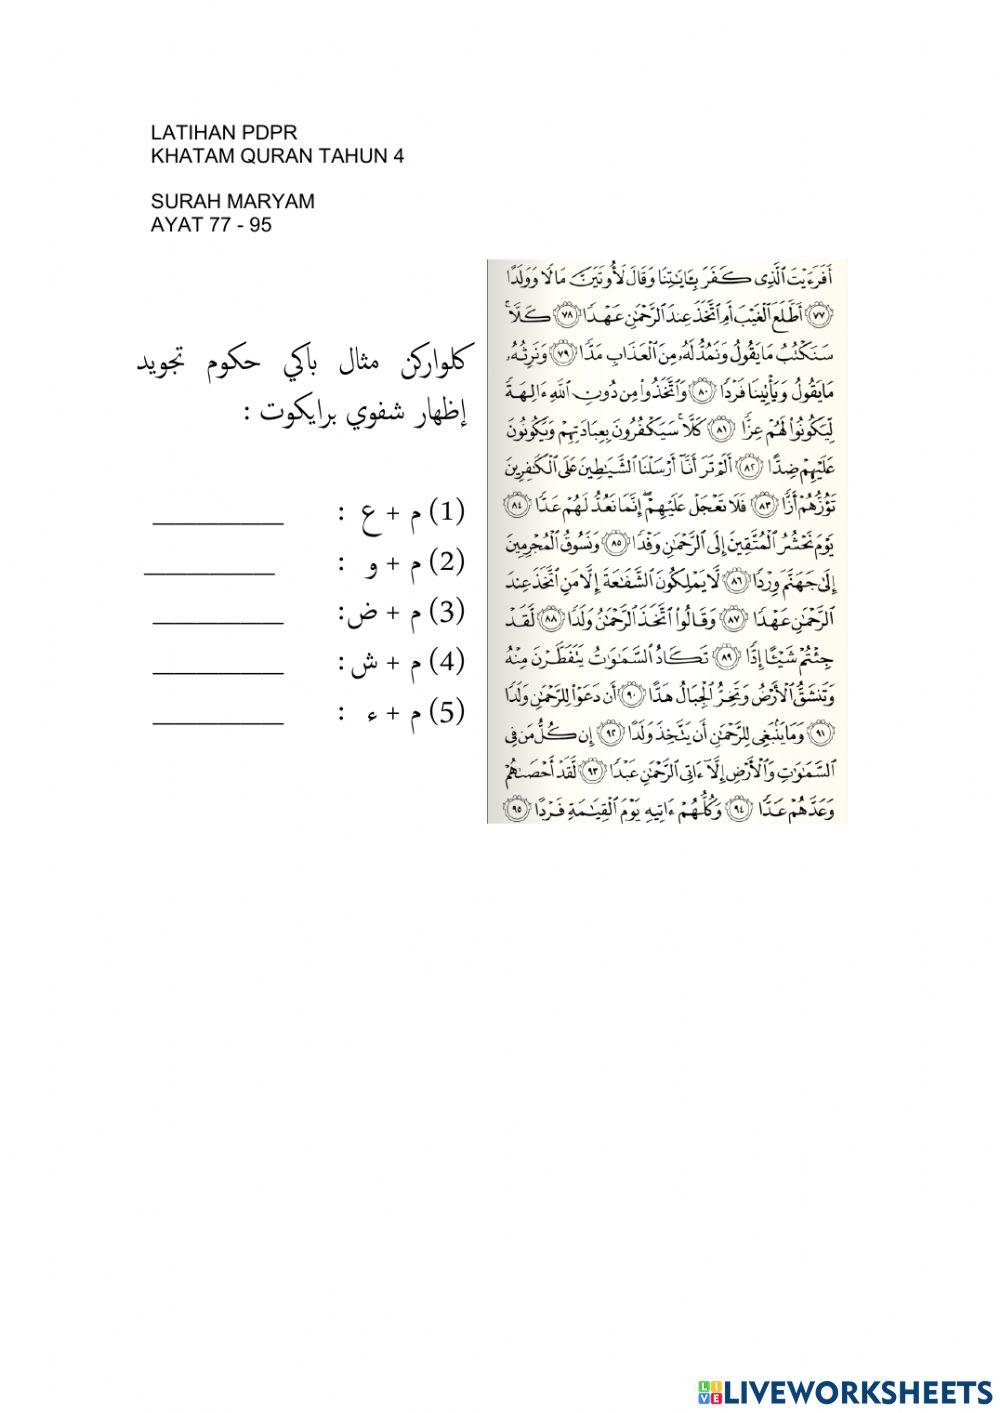 LATIHAN PDPR
KHATAM QURAN TAHUN 4
SURAH MARYAM
AYAT 77 - 95
كلواركن مثال باڬي حكوم تجويد
إظهار شفوي برايكوت :
(1) م + ع : ____________
(2) م + و : ____________
(3) م + ض: ____________
(4) م + ش: ____________
(5) م + ء : ____________
أَفَرَءَيْتَ ٱلَّذِى كَفَرَ بِـَٔايَٰتِنَا وَقَالَ لَأُوتَيَنَّ مَالًا وَوَلَدًا
﴿٧٧﴾ أَطَّلَعَ ٱلْغَيْبَ أَمِ ٱتَّخَذَ عِندَ ٱلرَّحْمَٰنِ عَهْدًا ﴿٧٨﴾ كَلَّا ۚ
سَنَكْتُبُ مَا يَقُولُ وَنَمُدُّ لَهُۥ مِنَ ٱلْعَذَابِ مَدًّا ﴿٧٩﴾ وَنَرِثُهُۥ
مَا يَقُولُ وَيَأْتِينَا فَرْدًا ﴿٨٠﴾ وَٱتَّخَذُوا۟ مِن دُونِ ٱللَّهِ ءَالِهَةً
لِّيَكُونُوا۟ لَهُمْ عِزًّا ﴿٨١﴾ كَلَّا ۚ سَيَكْفُرُونَ بِعِبَادَتِهِمْ وَيَكُونُونَ
عَلَيْهِمْ ضِدًّا ﴿٨٢﴾ أَلَمْ تَرَ أَنَّآ أَرْسَلْنَا ٱلشَّيَٰطِينَ عَلَى ٱلْكَٰفِرِينَ
تَؤُزُّهُمْ أَزًّا ﴿٨٣﴾ فَلَا تَعْجَلْ عَلَيْهِمْ ۖ إِنَّمَا نَعُدُّ لَهُمْ عَدًّا ﴿٨٤﴾
يَوْمَ نَحْشُرُ ٱلْمُتَّقِينَ إِلَى ٱلرَّحْمَٰنِ وَفْدًا ﴿٨٥﴾ وَنَسُوقُ ٱلْمُجْرِمِينَ
إِلَىٰ جَهَنَّمَ وِرْدًا ﴿٨٦﴾ لَّا يَمْلِكُونَ ٱلشَّفَٰعَةَ إِلَّا مَنِ ٱتَّخَذَ عِندَ
ٱلرَّحْمَٰنِ عَهْدًا ﴿٨٧﴾ وَقَالُوا۟ ٱتَّخَذَ ٱلرَّحْمَٰنُ وَلَدًا ﴿٨٨﴾ لَّقَدْ
جِئْتُمْ شَيْـًٔا إِدًّا ﴿٨٩﴾ تَكَادُ ٱلسَّمَٰوَٰتُ يَتَفَطَّرْنَ مِنْهُ
وَتَنشَقُّ ٱلْأَرْضُ وَتَخِرُّ ٱلْجِبَالُ هَدًّا ﴿٩٠﴾ أَن دَعَوْا۟ لِلرَّحْمَٰنِ وَلَدًا
﴿٩١﴾ وَمَا يَنۢبَغِى لِلرَّحْمَٰنِ أَن يَتَّخِذَ وَلَدًا ﴿٩٢﴾ إِن كُلُّ مَن فِى
ٱلسَّمَٰوَٰتِ وَٱلْأَرْضِ إِلَّآ ءَاتِى ٱلرَّحْمَٰنِ عَبْدًا ﴿٩٣﴾ لَّقَدْ أَحْصَىٰهُمْ
وَعَدَّهُمْ عَدًّا ﴿٩٤﴾ وَكُلُّهُمْ ءَاتِيهِ يَوْمَ ٱلْقِيَٰمَةِ فَرْدًا ﴿٩٥﴾
LIVEWORKSHEETS